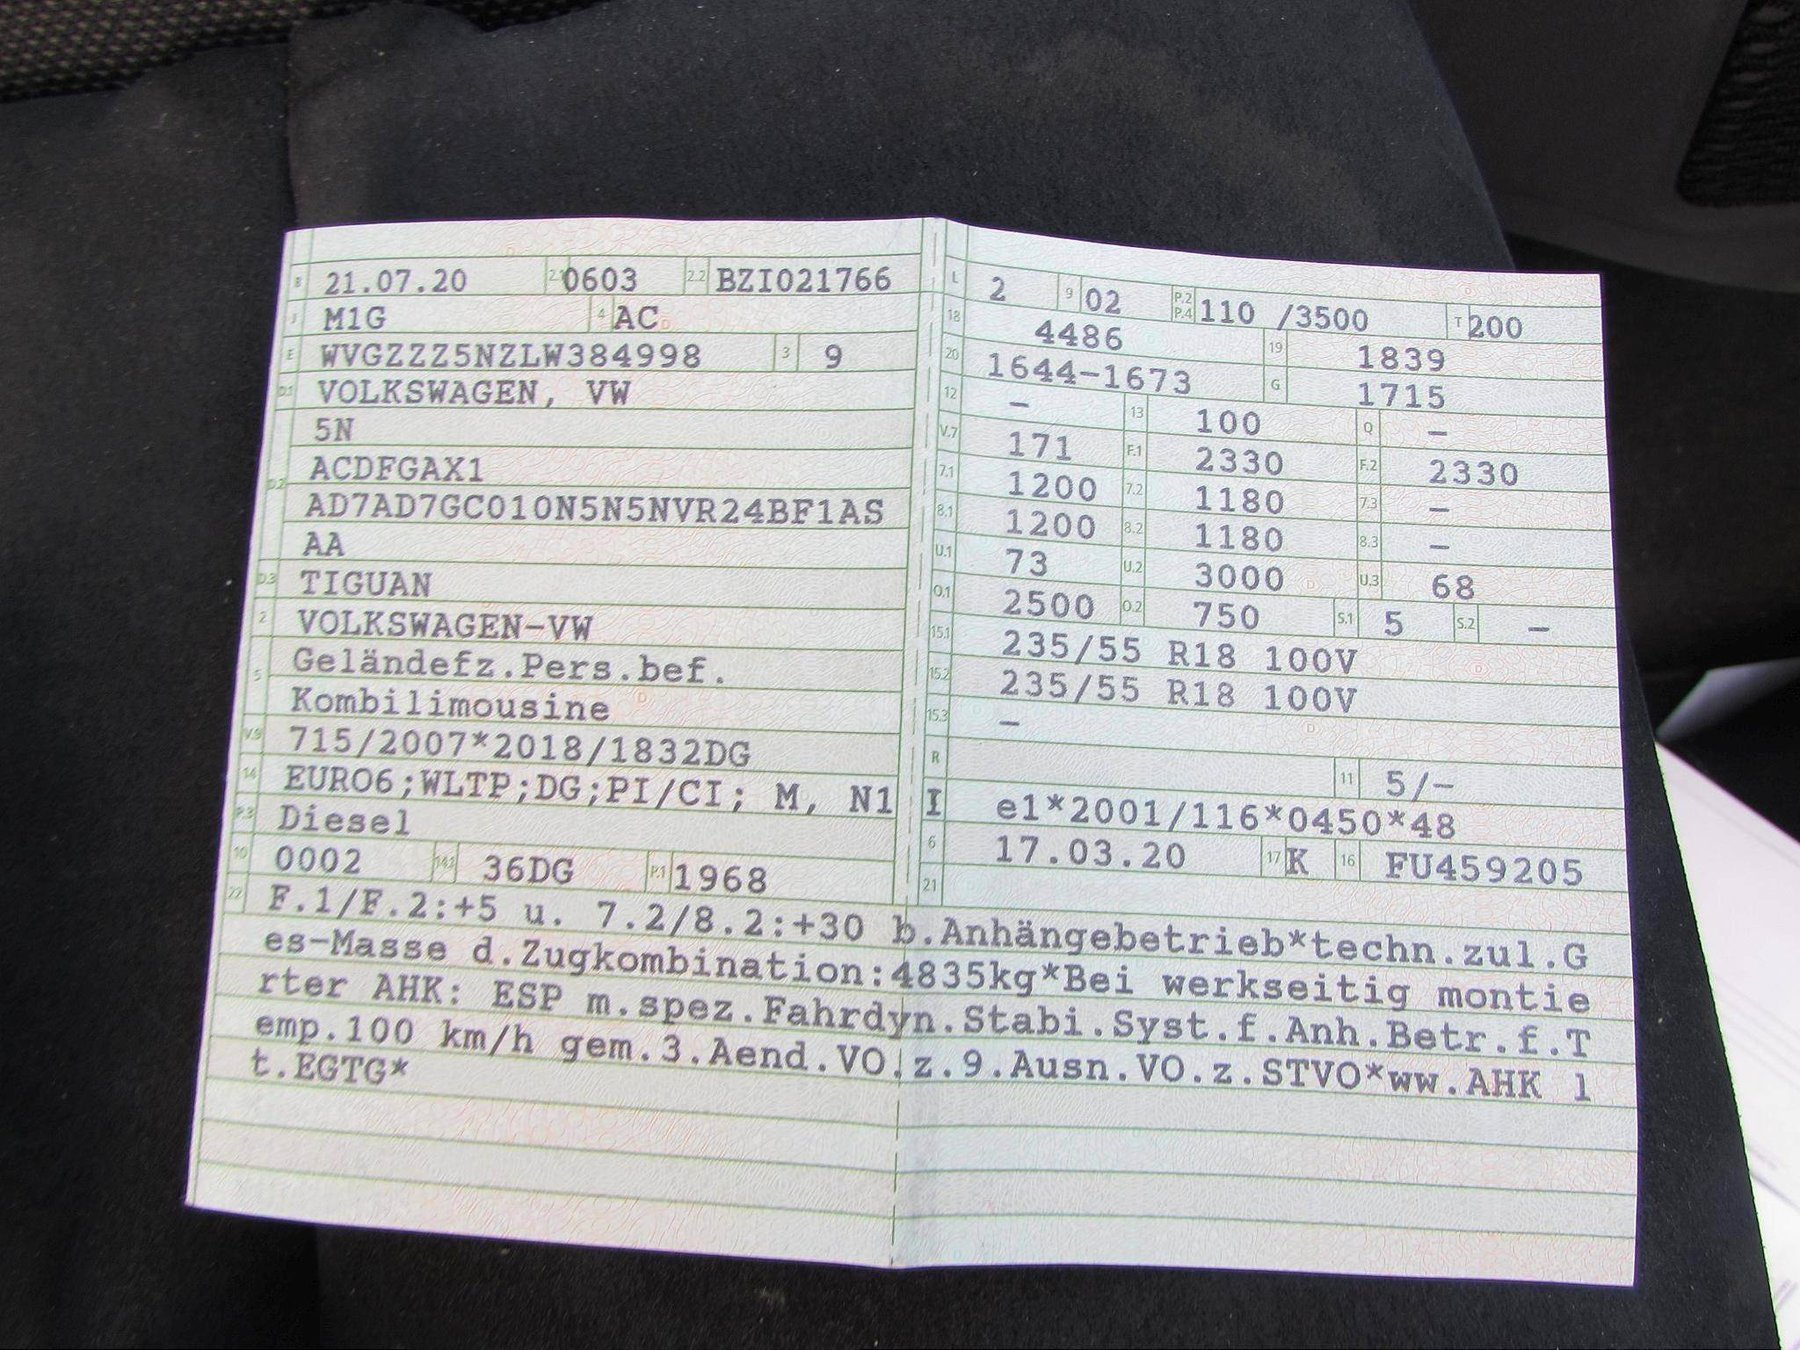 B 21.07.20 2.1 0603 2.2 BZI021766
J M1G 4 AC
E WVGZZZ5NZLW384998 3 9
D.1 VOLKSWAGEN, VW
5N
D.2 ACDFGAX1
AD7AD7GC010N5N5NVR24BF1AS
AA
D.3 TIGUAN
2 VOLKSWAGEN-VW
5 Geländefz.Pers.bef.
Kombilimousine
V.9 715/2007*2018/1832DG
14 EURO6;WLTP;DG;PI/CI; M, N1
P.3 Diesel
10 0002 14.1 36DG P.1 1968
L 2 9 02 P.2 P.4 110 /3500 T 200
18 4486 19 1839
20 1644-1673 G 1715
12 – 13 100 Q –
V.7 171 F.1 2330 F.2 2330
7.1 1200 7.2 1180 7.3 –
8.1 1200 8.2 1180 8.3 –
U.1 73 U.2 3000 U.3 68
O.1 2500 O.2 750 S.1 5 S.2 –
15.1 235/55 R18 100V
15.2 235/55 R18 100V
15.3 –
R 11 5/–
I e1*2001/116*0450*48
6 17.03.20 17 K 16 FU459205
21
22 F.1/F.2:+5 u. 7.2/8.2:+30 b.Anhängebetrieb*techn.zul.G
es-Masse d.Zugkombination:4835kg*Bei werkseitig montie
rter AHK: ESP m.spez.Fahrdyn.Stabi.Syst.f.Anh.Betr.f.T
emp.100 km/h gem.3.Aend.VO.z.9.Ausn.VO.z.STVO*ww.AHK l
t.EGTG*